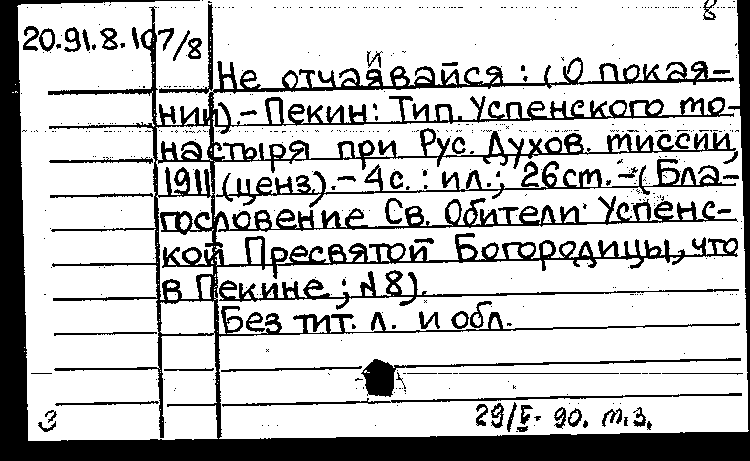 8
20.91.8.107/8
Не отчаивайся : (О покая-
нии).- Пекин: Тип. Успенского мо-
настыря при Рус. Духов. миссии,
1911 (ценз.).- 4с. : ил.; 26см.-(Бла-
гословение Св. Обители Успенс-
кой Пресвятой Богородицы, что
в Пекине ; №8).
Без тит. л. и обл.
З
29/V- 90. т.з.